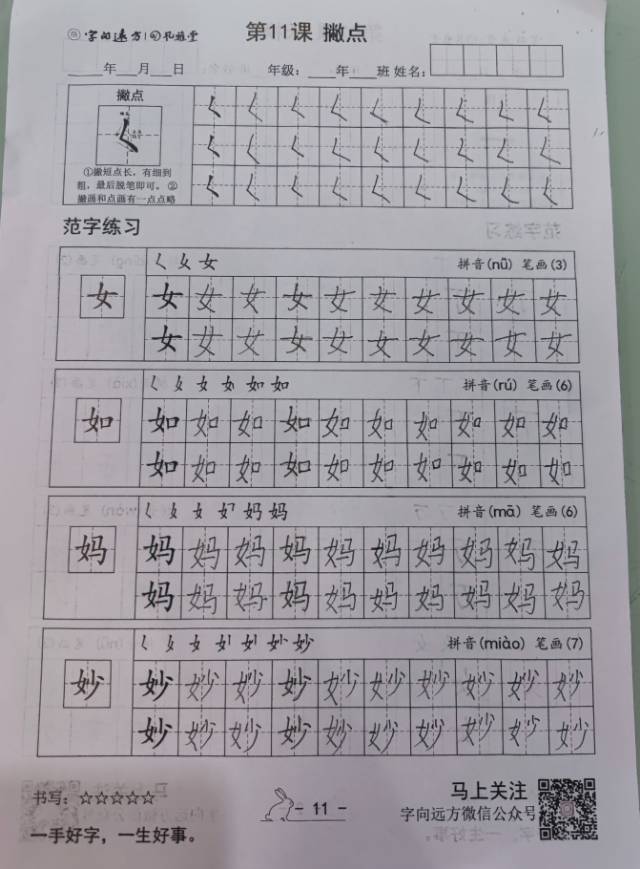 字向远方 第11课 撇点
年 月 日 年级: 年 班 姓名:
撇点
①撇短点长,有细到
粗,最后脱笔即可。②
撇画和点画有一点点略
范字练习
𡿨 女 女 拼音(nǚ) 笔画(3)
女 女 女 女 女 女 女 女 女 女 女
女 女 女 女 女 女 女 女 女 女
拼音(rú) 笔画(6)
如 如 如 如 如 如 如 如 如 如 如
如 如 如 如 如 如 如 如 如 如
拼音(mā) 笔画(6)
妈 妈 妈 妈 妈 妈 妈 妈 妈 妈 妈
妈 妈 妈 妈 妈 妈 妈 妈 妈 妈
拼音(miào) 笔画(7)
妙 妙 妙 妙 妙 妙 妙 妙 妙 妙 妙
妙 妙 妙 妙 妙 妙 妙 妙 妙 妙
书写:☆☆☆☆☆ - 11 - 马上关注
字向远方微信公众号
一手好字,一生好事。